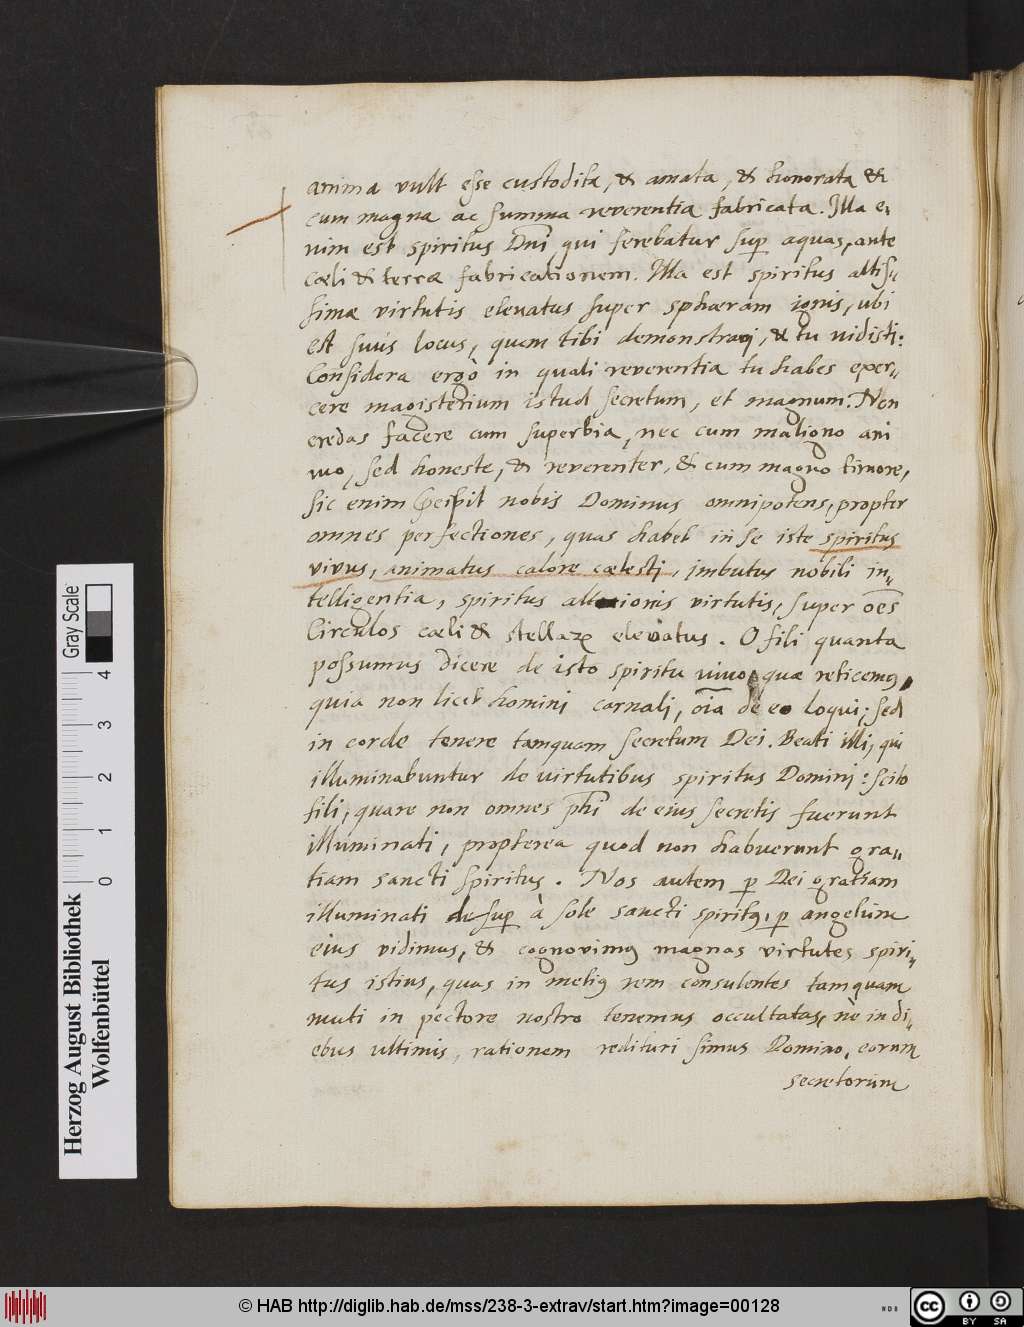 anima vult esse custodita, & amata, & honorata &
cum magna ac summa reverentia fabricata. Illa e-
nim est spiritus Dñi, qui ferebatur sup aquas, ante
cæli & terræ fabricationem. Illa est spiritus altis-
simæ virtutis elevatus super sphæram ignis, ubi
est suus locus, quem tibi demonstravi, & tu vidisti:
Considera ergò in quali reverentia tu habes exer-
cere magisterium istud secretum, et magnum. Non
credas facere cum superbia, nec cum maligno ani
mo, sed honeste, & reverenter, & cum magno timore,
sic enim nobis Dominus omnipotens, propter
omnes perfectiones, quas habet in se iste spiritus
vivus, animatus calore cælesti, imbutus nobili in-
telligentia, spiritus altionis virtutis, super oẽs
Circulos cæli & stellaꝝ elevatus. O fili quanta
possumus dicere de isto spiritu vivo, quæ reticemꝰ,
quia non licet homini carnali, oĩa de eo loqui; sed
in corde tenere tamquam secretum Dei. Beati illi, qui
illuminabuntur de virtutibus spiritus Domini: scito
fili, quare non omnes phi de eius secretis fuerunt
illuminati, propterea quod non habuerunt gra-
tiam sancti spiritus. Nos autem p Dei gratiam
illuminati desup à sole sancti spiritꝰ, p angelum
eius vidimus, & cognovimꝰ magnas virtutes spiri-
tus istius, quas in meliꝰ rem consulentes tamquam
muti in pectore nostro tenemus occultatas, nè in di-
ebus ultimis, rationem reddituri simus Domino, eorum
secretorum
Herzog August Bibliothek
Wolfenbüttel
Gray Scale
0 1 2 3 4
© HAB http://diglib.hab.de/mss/238-3-extrav/start.htm?image=00128
cc BY SA